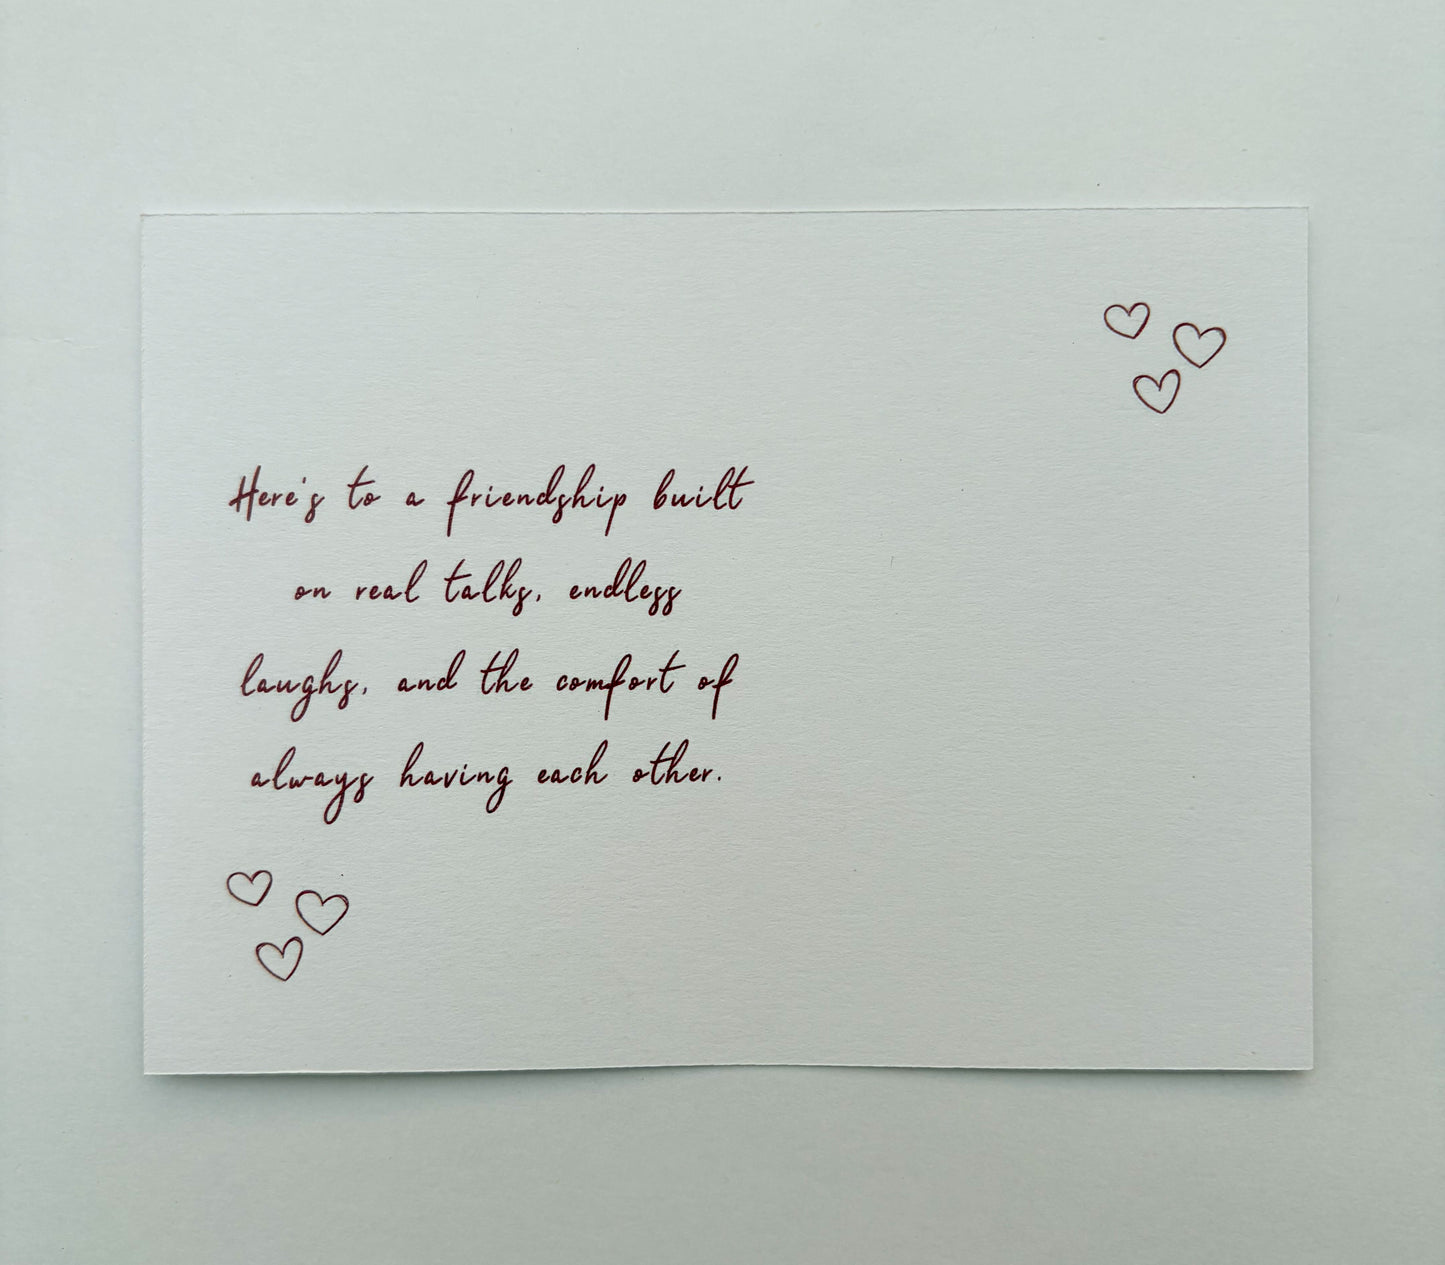 Here's to a friendship built
on real talks, endless
laughs, and the comfort of
always having each other.